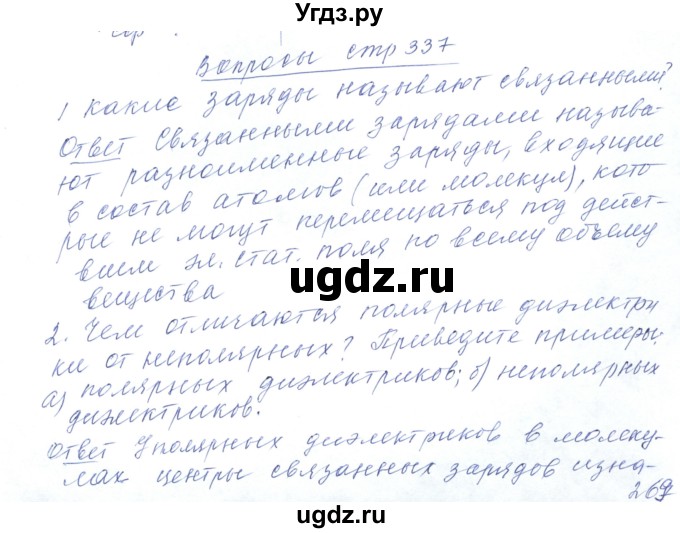 Угдз.ру
Вопросы стр 337
1 Какие заряды называют связанными?
Ответ Связанными зарядами называ-
ют разноименные заряды, входящие
в состав атомов (или молекул), кото
рые не могут перемещаться под дейст-
вием эл. стат. поля по всему объему
вещества
ugdz.ru
2. Чем отличаются полярные диэлектри
ки от неполярных? Приведите примеры:
а) полярных диэлектриков; б) неполярных
диэлектриков.
Ответ У полярных диэлектриков в молеку-
лах центры связанных зарядов изна-
269
ugdz.ru